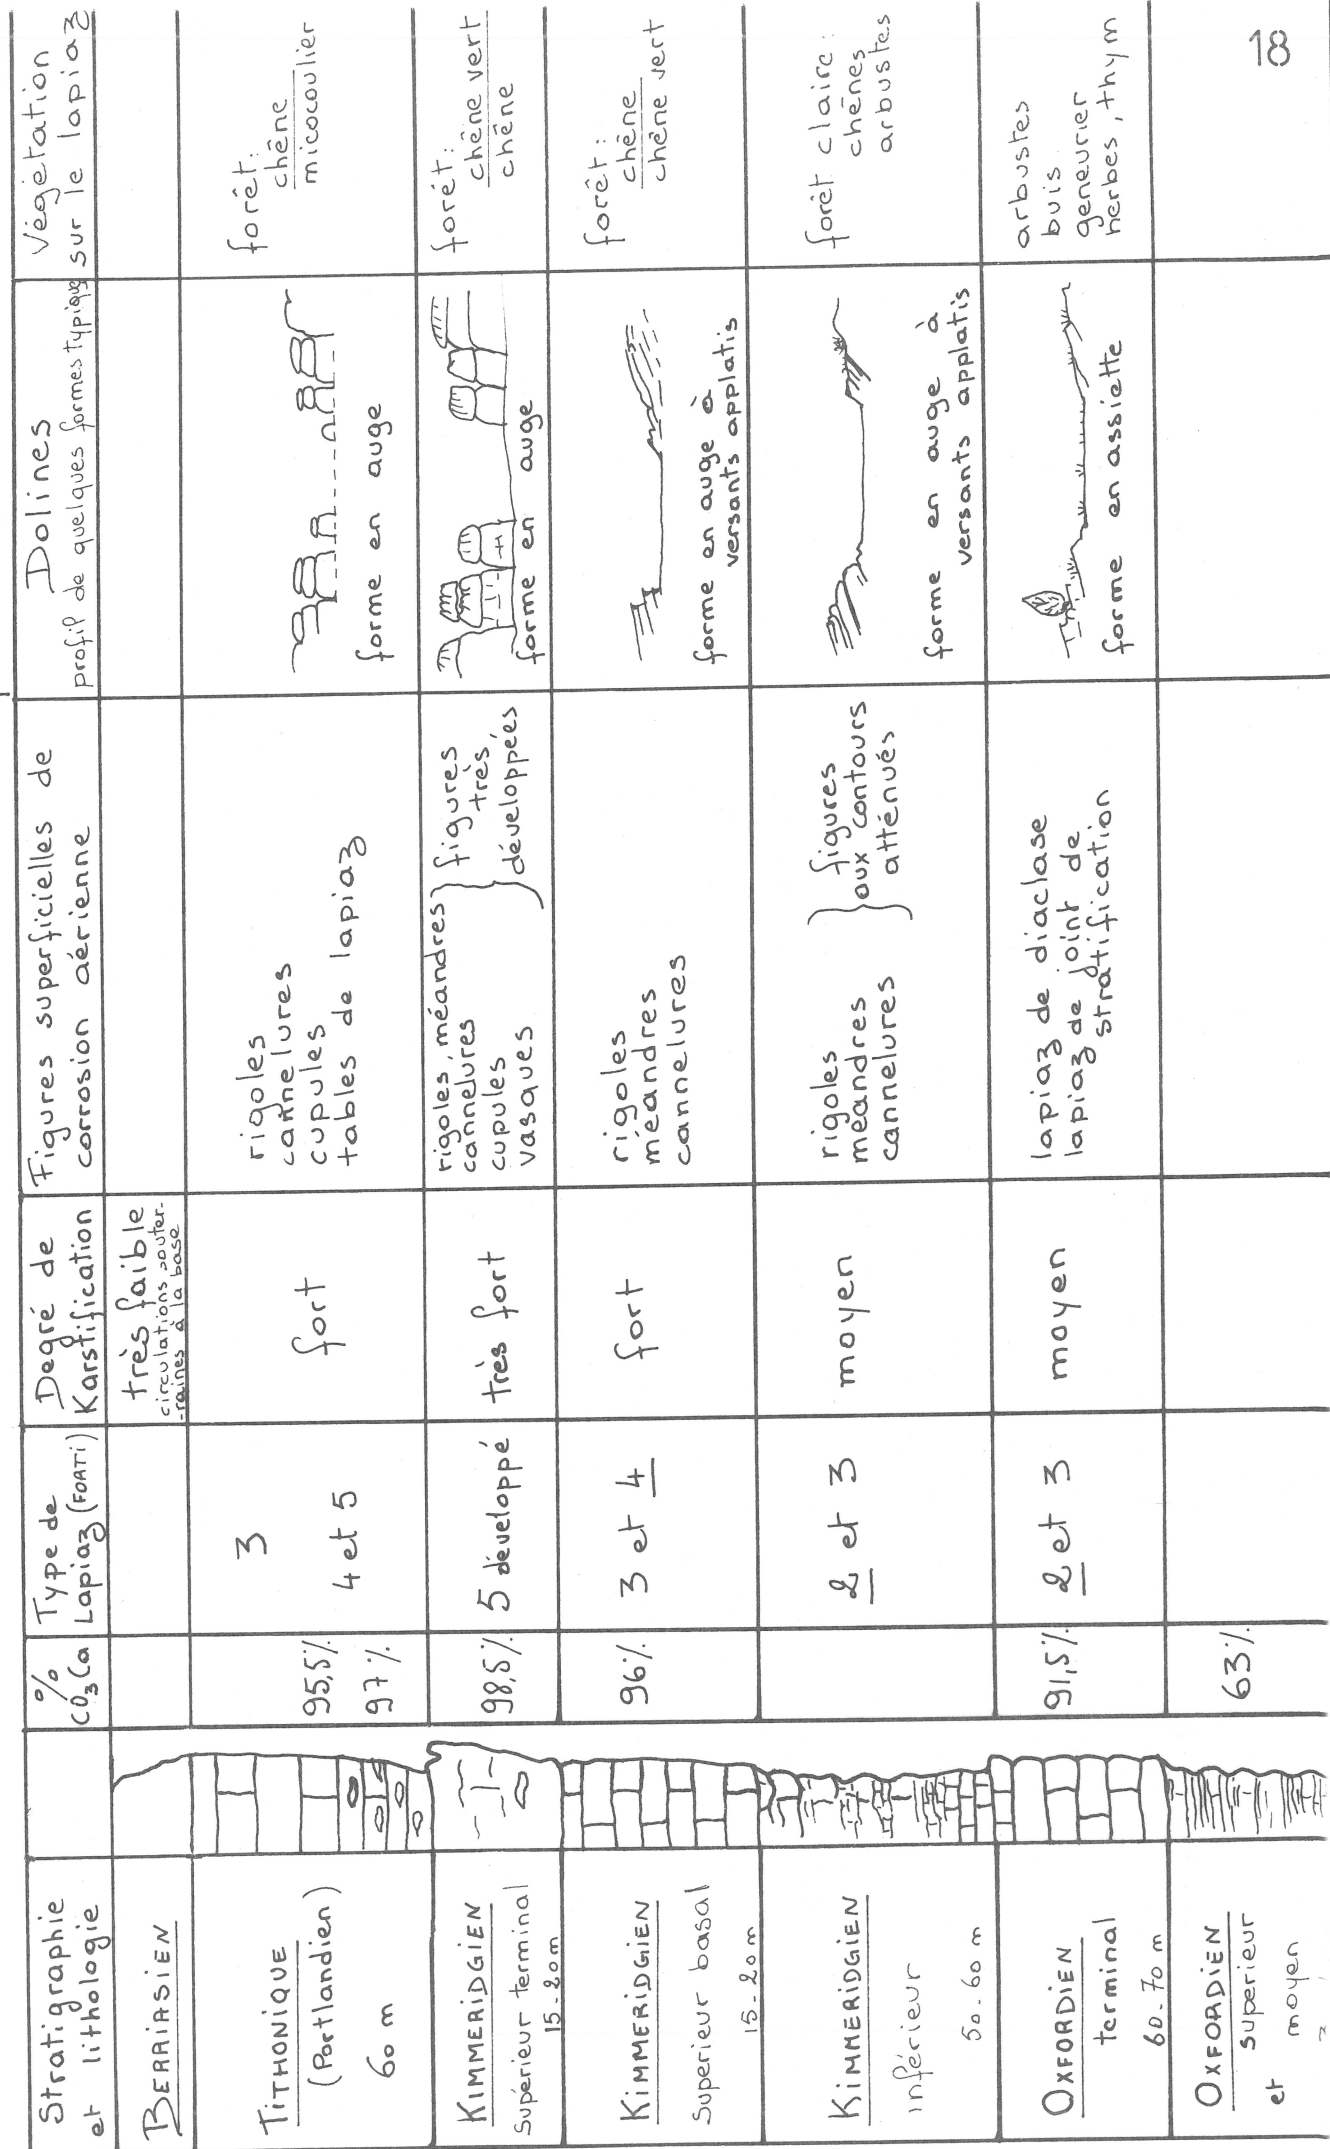 Stratigraphie
et lithologie
%
CO₃Ca
Type de
Lapiaz (FORTI)
Degré de
Karstification
Figures superficielles de
corrosion aérienne
Dolines
profil de quelques formes typiques
Végétation
sur le lapiaz
BERRIASIEN
très faible
circulations souter-
-raines à la base
TITHONIQUE
(Portlandien)
60 m
95,5%
97%
3
4 et 5
fort
rigoles
cannelures
cupules
tables de lapiaz
forme en auge
forêt:
chêne
micocoulier
KIMMERIDGIEN
Supérieur terminal
15-20m
98,5%
5 développé
très fort
rigoles, méandres
cannelures
cupules
vasques
figures
très
développées
forme en auge
forêt:
chêne vert
chêne
KIMMERIDGIEN
Superieur basal
15-20m
96%
3 et 4
fort
rigoles
méandres
cannelures
forme en auge à
versants applatis
forêt:
chêne
chêne vert
KIMMERIDGIEN
inférieur
50-60m
2 et 3
moyen
rigoles
méandres
cannelures
figures
aux contours
atténués
forme en auge à
versants applatis
forêt claire:
chênes
arbustes
OXFORDIEN
terminal
60-70 m
91,5%
2 et 3
moyen
lapiaz de diaclase
lapiaz de joint de
stratification
forme en assiette
arbustes
buis
genevrier
herbes, thym
OXFORDIEN
superieur
et moyen
63%
18